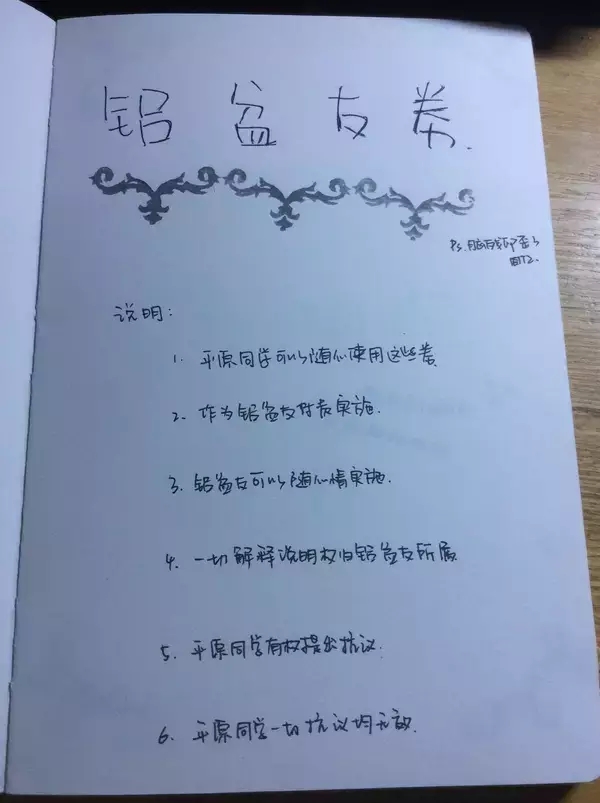 铝盆友券.
Ps. 脑残印歪了
说明:
1. 平原同学可以随心使用这些券
2. 作为铝盆友代表实施.
3. 铝盆友可以随心情实施.
4. 一切解释说明权归铝盆友所属
5. 平原同学有权提出抗议.
6. 平原同学一切抗议均无效.